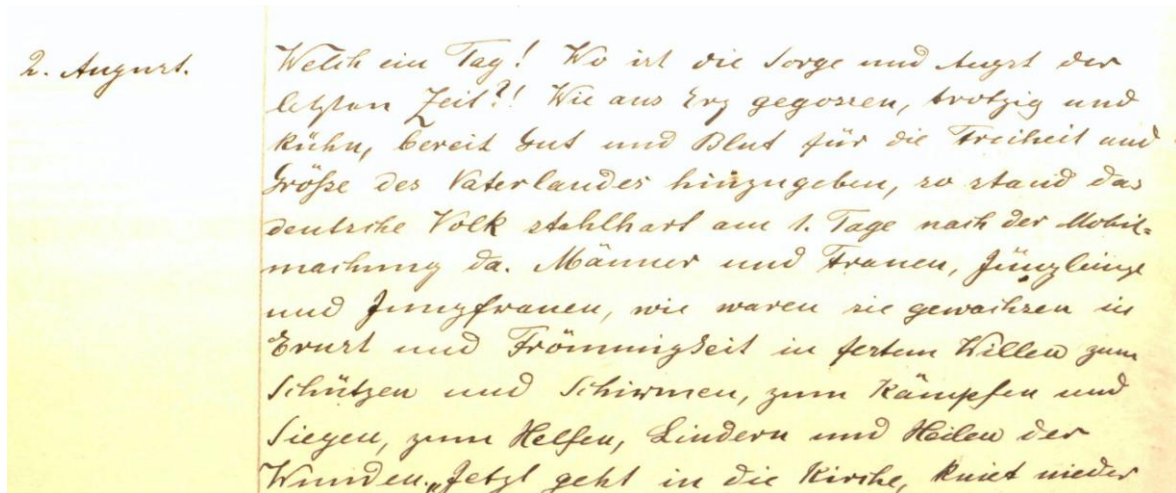 2. August. Welch ein Tag! Wo ist die Sorge und Angst der
letzten Zeit?! Wie aus Erz gegossen, trotzig und
kühn, bereit Gut und Blut für die Freiheit und
Größe des Vaterlandes hinzugeben, so stand das
deutsche Volk stahlhart am 1. Tage nach der Mobil=
machung da. Männer und Frauen, Jünglinge
und Jungfrauen, wie waren sie gewachsen in
Ernst und Frömmigkeit in festem Willen zum
Schützen und Schirmen, zum Kämpfen und
Siegen, zum Helfen, Lindern und Heilen der
Wunden. „Jetzt geht in die Kirche, kniet nieder